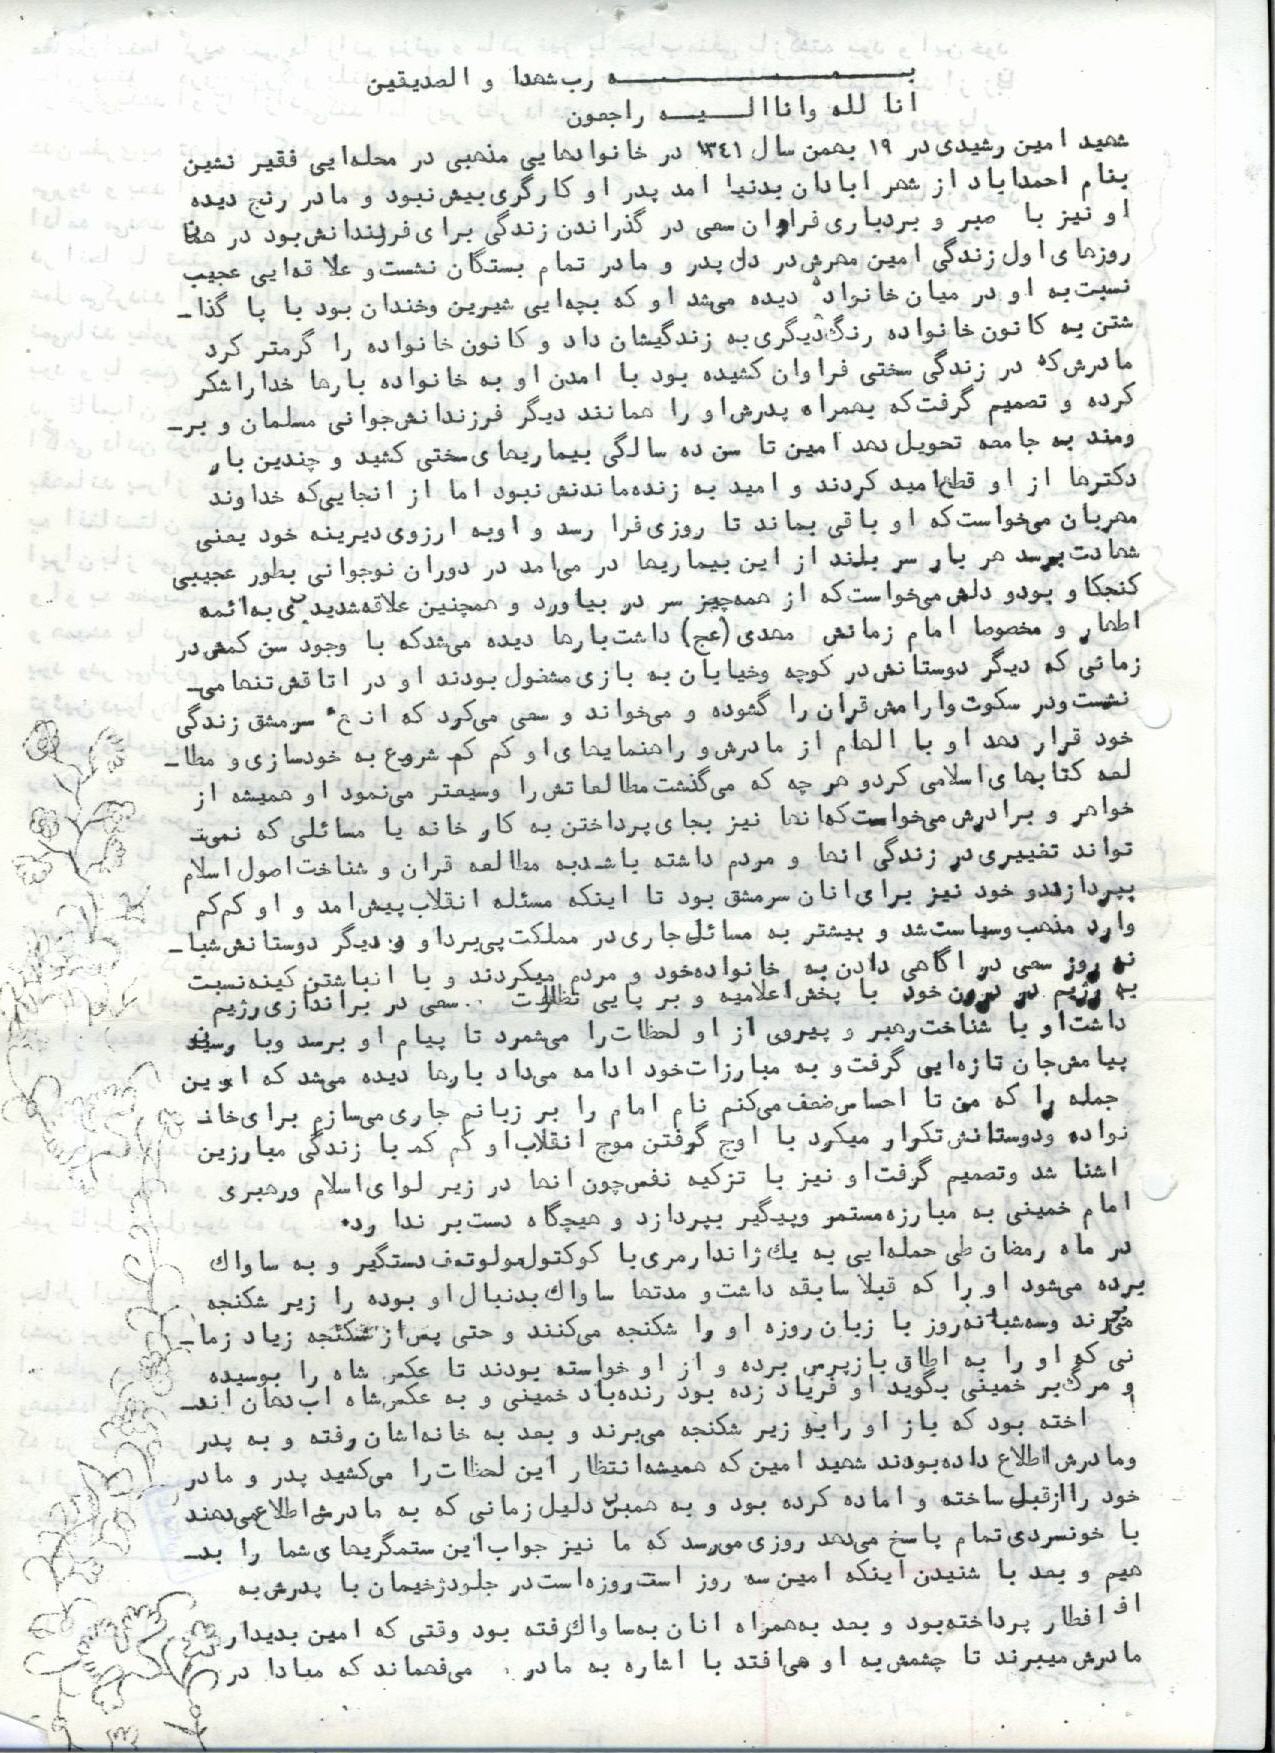 بـــــه رب شهدا و الصدیقین
انا لله وانا الـیـــه راجعون
شهید امین رشیدی در ۱۹ بهمن سال ۱۳۴۱ در خانوادهایی مذهبی در محله‌ایی فقیر نشین
بنام احمداباد از شهر ابادان بدنیا امد پدر او کارگری بیش نبود و مادر رنج دیده
او نیز با صبر و بردباری فراوان سعی در گذراندن زندگی برای فرزندانش بود در همان
روزهای اول زندگی امین مهرش در دل پدر و مادر تمام بستگان نشست و علاقه‌ایی عجیب
نسبت به او در میان خانواده دیده می‌شد او که بچه‌ایی شیرین وخندان بود با پا گذا-
شتن به کانون خانواده رنگ دیگری به زندگیشان داد و کانون خانواده را گرمتر کرد
مادرش که در زندگی سختی فراوان کشیده بود با امدن او به خانواده بارها خدا را شکر
کرده و تصمیم گرفت که بهمراه پدرش او را همانند دیگر فرزندانش جوانی مسلمان و بر-
ومند به جامعه تحویل دهد امین تا سن ده سالگی بیماریهای سختی کشید و چندین بار
دکترها از او قطع امید کردند و امید به زنده ماندنش نبود اما از انجایی که خداوند
مهربان می‌خواست که او باقی بماند تا روزی فرا رسد و اوبه ارزوی دیرینه خود یعنی
شهادت برسد هر بار سر بلند از این بیماریها در می‌امد در دوران نوجوانی بطور عجیبی
کنجکاو بودو دلش می‌خواست که از همه چیز سر در بیاورد و همچنین علاقه شدیدی به ائمه
اطهار و مخصوصا امام زمانش مهدی (عج) داشت بارها دیده می‌شد که با وجود سن کمش در
زمانی که دیگر دوستانش در کوچه وخیابان به بازی مشغول بودند او در اتاقش تنها می-
نشست ودر سکوت وارامش قران را گشوده و می‌خواند و سعی می‌کرد که انرا سرمشق زندگی
خود قرار دهد او با الهام از مادرش و راهنمایهای او کم کم شروع به خودسازی و مطا-
لعه کتابهای اسلامی کردو هر چه که می‌گذشت مطالعاتش را وسیعتر می‌نمود او همیشه از
خواهر و برادرش می‌خواست که انها نیز بجای پرداختن به کار خانه یا مسائلی که نمی-
تواند تغییری در زندگی انها و مردم داشته باشد به مطالعه قران و شناخت اصول اسلام
بپردازندو خود نیز برای انان سرمشق بود تا اینکه مسئله انقلاب پیش امد و او کم کم
وارد مذهب وسیاست شد و بیشتر به مسائل جاری در مملکت پی برد او و دیگر دوستانش شبا-
نه روز سعی در اگاهی دادن به خانواده خود و مردم میکردند و با انباشتن کینه نسبت
به رژیم در درون خود با پخش اعلامیه و بر پایی تظاهرات سعی در براندازی رژیم
داشت او با شناخت رهبر و پیروی از او لحظات را می‌شمرد تا پیام او برسد وبا رسیدن
پیامش جان تازه‌ایی گرفت و به مبارزات خود ادامه می‌داد بارها دیده می‌شد که او این
جمله را که من تا احساس ضعف می‌کنم نام امام را بر زبانم جاری می‌سازم برای خان-
نواده ودوستانش تکرار میکرد با اوج گرفتن موج انقلاب او کم کم با زندگی مبارزین
اشنا شد وتصمیم گرفت او نیز با تزکیه نفس چون انها در زیر لوای اسلام ورهبری
امام خمینی به مبارزه مستمر وپیگیر بپردازد و هیچگاه دست بر ندارد.
در ماه رمضان طی حمله‌ایی به یك ژاندارمری با کوکتول مولوتف دستگیر و به ساواك
برده می‌شود او را که قبلا سابقه داشت و مدتها ساواك بدنبال او بوده را زیر شکنجه
می‌برند وسه شبانه روز با زبان روزه او را شکنجه می‌کنند و حتی پس از شکنجه زیاد زما-
نی که او را به اطاق بازپرس برده و از او خواسته بودند تا عکس شاه را بوسیده
و مرگ بر خمینی بگوید او فریاد زده بود زنده‌باد خمینی و به عکس شاه اب دهان اند-
اخته بود که باز او رابو زیر شکنجه می‌برند و بعد به خانه‌اشان رفته و به پدر
ومادرش اطلاع داده بودند شهید امین که همیشه انتظار این لحظات را می‌کشید پدر و مادر
خود را از قبل ساخته و اماده کرده بود و به همین دلیل زمانی که به مادرش اطلاع می‌دهند
با خونسردی تمام پاسخ می‌دهد روزی می‌رسد که ما نیز جواب این ستمگریهای شما را بد-
هیم و بعد با شنیدن اینکه امین سه روز است روزه است در جلو دژخیمان با پدرش به
اف افطار پرداخته بود و بعد به همراه انان به ساواك رفته بود وقتی که امین بدیدار
مادرش میبرند تا چشمش به او می‌افتد با اشاره به مادر می‌فهماند که مبادا در